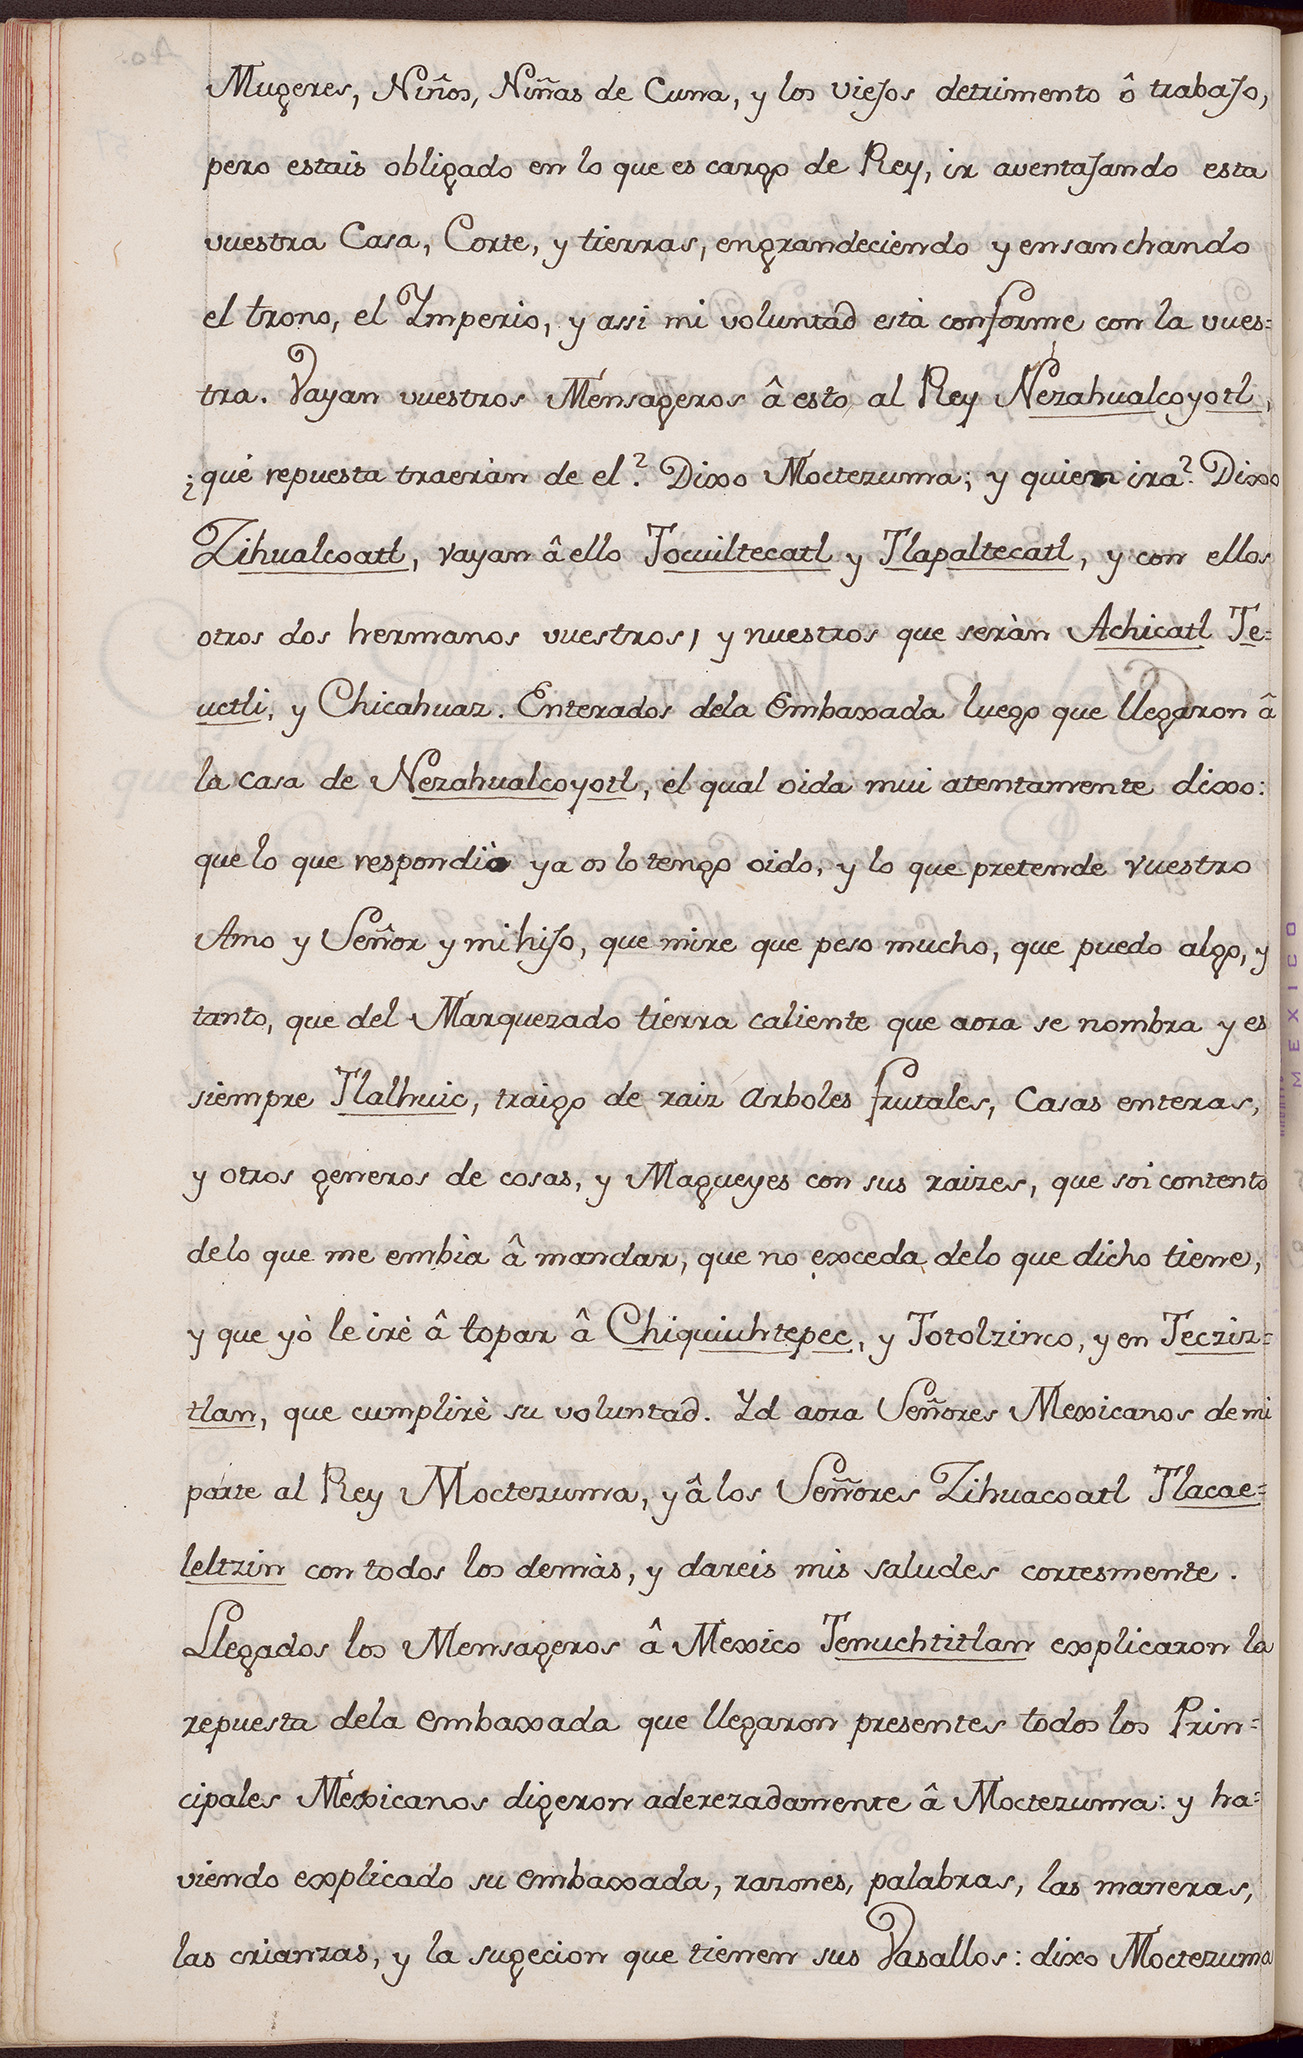 Mugeres, Niños, Niñas de Cuna, y los viejos detrimento ô trabajo,
pero estais obligado en lo que es cargo de Rey, ir aventajando esta
vuestra Casa, Corte, y tierras, engrandeciendo y ensanchando
el trono, el Ymperio, y assi mi voluntad està conforme con la vues=
tra. Vayan vuestros Mensageros â esto al Rey Nezahualcoyotl,
¿què repuesta traeràn de el? Dixo Moctezuma; y quien ira? Dixo
Zihualcoatl, vayan â ello Tocuiltecatl y Tlapaltecatl, y con ellos
otros dos hermanos vuestros, y nuestros que seràn Achicatl Te=
uctli, y Chicahuaz. Enterados dela Embaxada luego que llegaron â
la casa de Nezahualcoyotl, el qual oida mui atentamente dixo:
que lo que respondiò ya os lo tengo oido, y lo que pretende vuestro
Amo y Señor y mi hijo, que mire que peso mucho, que puedo algo, y
tanto, que del Marquezado tierra caliente que aora se nombra y es
siempre Tlalhuic, traigo de raiz arboles frutales, Casas enteras,
y otros generos de cosas, y Magueyes con sus raizes, que soi contento
delo que me embia â mandar, que no exceda delo que dicho tiene,
y que yò le irè â topar â Chiquiuhtepec, y Totolzinco, y en Tecziz=
tlan, que cumplirè su voluntad. Yd aora Señores Mexicanos de mi
parte al Rey Moctezuma, y â los Señores Zihuacoatl Tlacae=
leltzin con todos los demàs, y dareis mis saludes cortesmente.
Llegados los Mensageros â Mexico Tenuchtitlan explicaron la
repuesta dela embaxada que llegaron presentes todos los Prin=
cipales Mexicanos digeron aderezadamente â Moctezuma: y ha=
viendo explicado su embaxada, razones, palabras, las maneras,
las crianzas, y la sugecion que tienen sus Vasallos: dixo Moctezuma
MEXICO